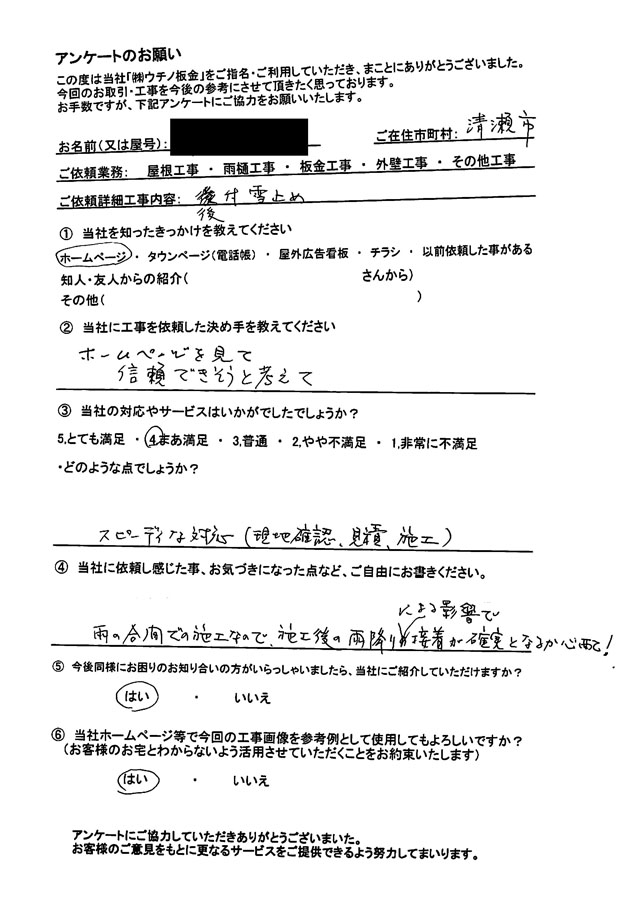 アンケートのお願い
この度は当社「㈱ウチノ板金」をご指名・ご利用していただき、まことにありがとうございました。
今回のお取引・工事を今後の参考にさせて頂きたく思っております。
お手数ですが、下記アンケートにご協力をお願いいたします。
お名前(又は屋号):
ご在住市町村: 清瀬市
ご依頼業務: 屋根工事 ・ 雨樋工事 ・ 板金工事 ・ 外壁工事 ・ その他工事
ご依頼詳細工事内容: 後付雪止め
後
① 当社を知ったきっかけを教えてください
ホームページ ・ タウンページ(電話帳) ・ 屋外広告看板 ・ チラシ ・ 以前依頼した事がある
知人・友人からの紹介( さんから)
その他( )
② 当社に工事を依頼した決め手を教えてください
ホームページを見て
信頼できそうと考えて
③ 当社の対応やサービスはいかがでしたでしょうか?
5,とても満足 ・ 4,まあ満足 ・ 3,普通 ・ 2,やや不満足 ・ 1,非常に不満足
・どのような点でしょうか?
スピーディな対応(現地確認、見積、施工)
④ 当社に依頼し感じた事、お気づきになった点など、ご自由にお書きください。
による影響で
雨の合間での施工なので、施工後の雨降り接着が確実となるか心配!
⑤ 今後同様にお困りのお知り合いの方がいらっしゃいましたら、当社にご紹介していただけますか?
はい ・ いいえ
⑥ 当社ホームページ等で今回の工事画像を参考例として使用してもよろしいですか?
(お客様のお宅とわからないよう活用させていただくことをお約束いたします)
はい ・ いいえ
アンケートにご協力していただきありがとうございまいた。
お客様のご意見をもとに更なるサービスをご提供できるよう努力してまいります。